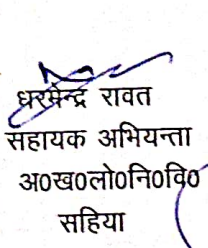 धरमेन्द्र रावत
सहायक अभियन्ता
अ0ख0लो0नि0वि0
सहिया